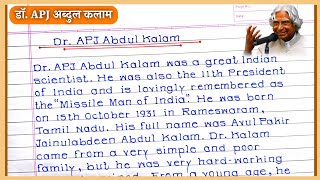 डॉ. APJ अब्दुल कलाम
Dr. APJ Abdul Kalam
Dr. APJ Abdul Kalam was a great Indian
scientist. He was also the 11th President
of India and is lovingly remembered as
the "Missile Man of India". He was born
on 15th October 1931 in Rameswaram,
Tamil Nadu. His full name was Avul Pakir
Jainulabdeen Abdul Kalam. Dr. Kalam
came from a very simple and poor
family, but he was very hard-working
From a young age, he